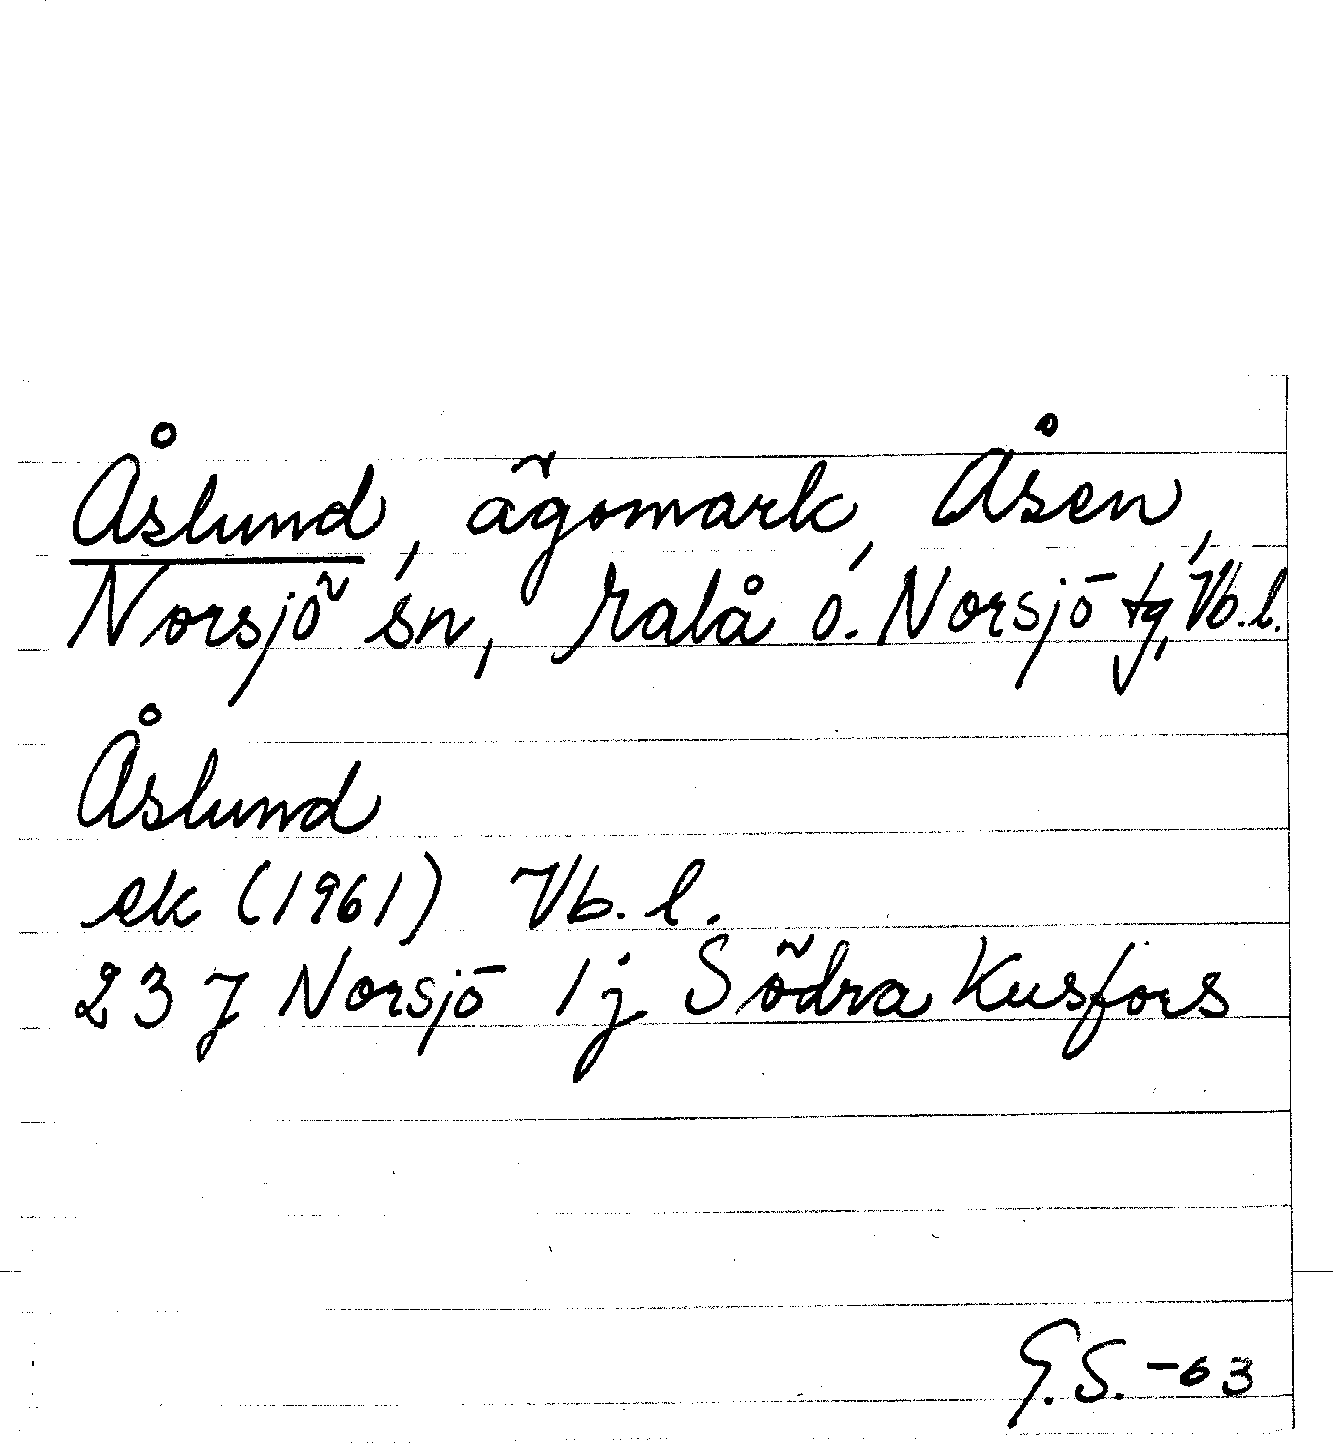 Åslund, ägomark, Åsen,
Norsjö sn, Malå o. Norsjö tg, Vb. l.
Åslund
ek (1961) Vb. l.
23 J Norsjö 1 j Södra Kusfors
G.S. -63